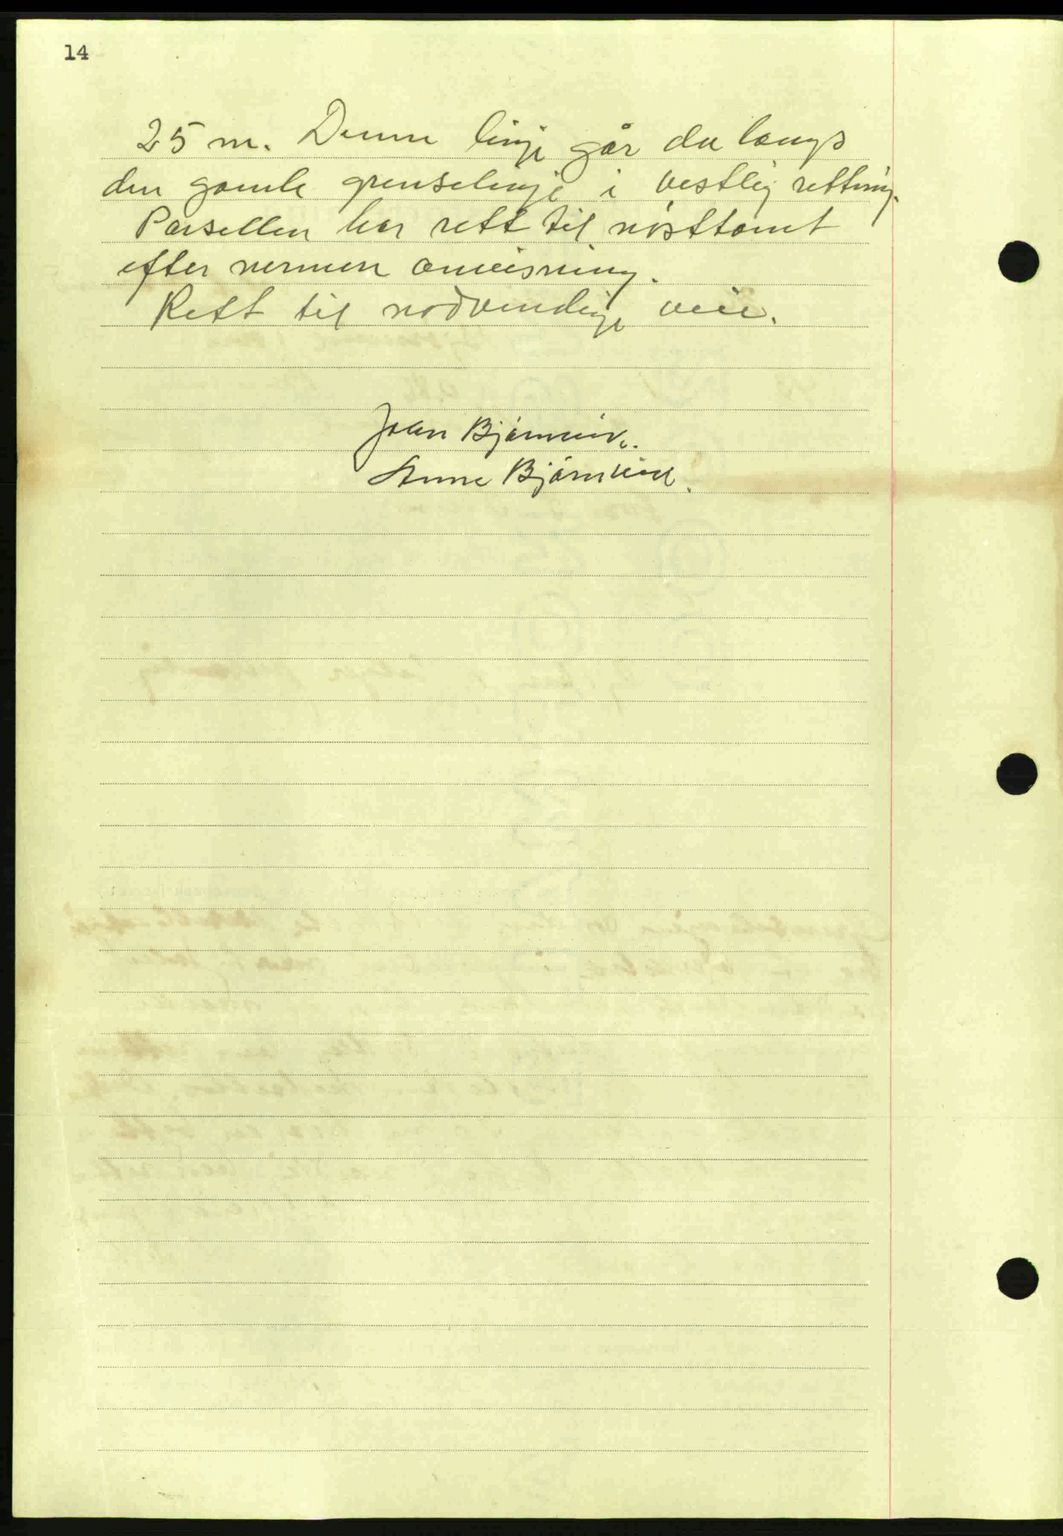 14
25 m. Denne linje går da langs
den gamle grenselinje i vestlig retning.
Parsellen har rett til nøsttomt
efter nermere anvisning.
Rett til nødvendige veie.
Johan
Anna Bjørnvik.